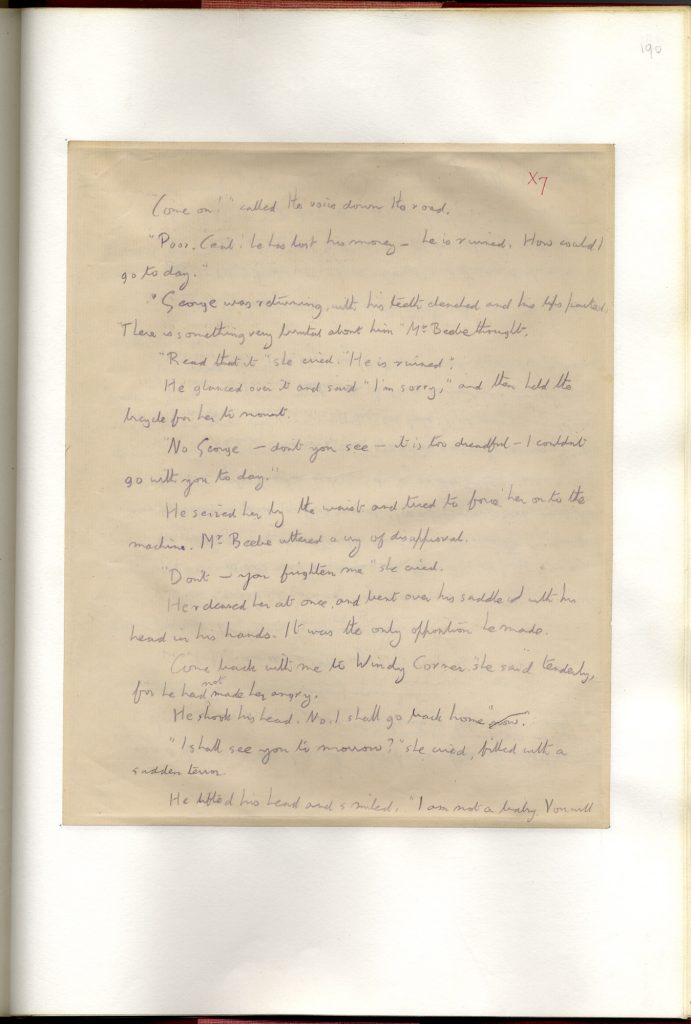 190
X7
"Come on!" called the voice down the road.
"Poor Cecil! he has lost his money – he is ruined. How could I
go to day."
"George was returning, with his teeth clenched and his lips parted.
"There is something very brutal about him" Mr Beebe thought.
"Read that it" she cried. "He is ruined".
He glanced over it and said "I'm sorry," and then held the
bicycle for her to mount.
"No George – don't you see – it is too dreadful – I couldn't
go with you to day."
He seized her by the waist and tried to force her on to the
machine. Mr Beebe uttered a cry of disapproval.
"Don't – you frighten me" she cried.
He released her at once, and bent over his saddle with his
head in his hands. It was the only opposition he made.
"Come back with me to Windy Corner" she said tenderly,
for he had not made her angry.
He shook his head. No. I shall go back home" now."
"I shall see you to morrow?" she cried, filled with a
sudden terror.
He lifted his head and smiled. "I am not a baby. You will